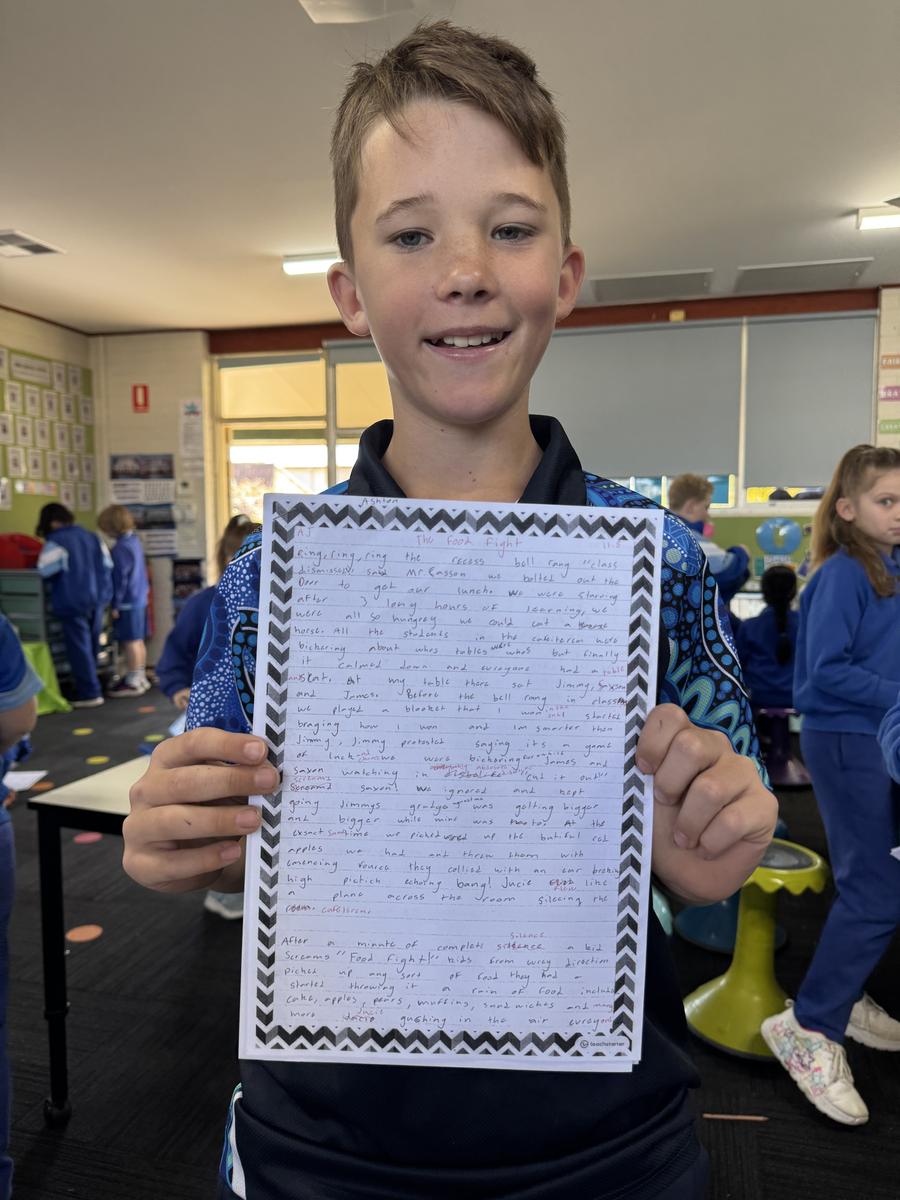 Ashton
AJ
The Food Fight
11.5
Ring, ring, ring the recess bell rang "class
dismissed, said Mr Casson we bolted out the
Door to get our lunch. We were starving
after 3 long hours of learning, we
were all so hungrey we could eat a
horse. All the students in the cafeiterem were
bickering about whos tables were whos but finally
it calmed down and eureyone had a table
seat. At my table there sat Jimmy, Saxson
and James. Before the bell rang in class
we played a blooket that I won in the end I started
braging how I won and im smarter then
Jimmy, Jimmy protested saying its a game
of luck and we were bickering while James and
Saxon watching in "cut it out"
Screamed saxon! We ignored and kept
going Jimmys grudge against me was getting bigger
and bigger while mine was to. At the
exsact same time we picked up the butiful red
apples we had and threw them with
emencing fource they collied with an ear braking
high pictich echoing bang! Jucie flew like
a plane across the room silecing the
cafeiterem.
After a minute of complete silence a kid
Screams "Food fight!" kids from urey direction
picked up any sort of food they had a
started throwing it a rain of food includ
cake, apples, pears, muffins, sandwiches and many
more Jucie gushing in the air eurey
teachstarter